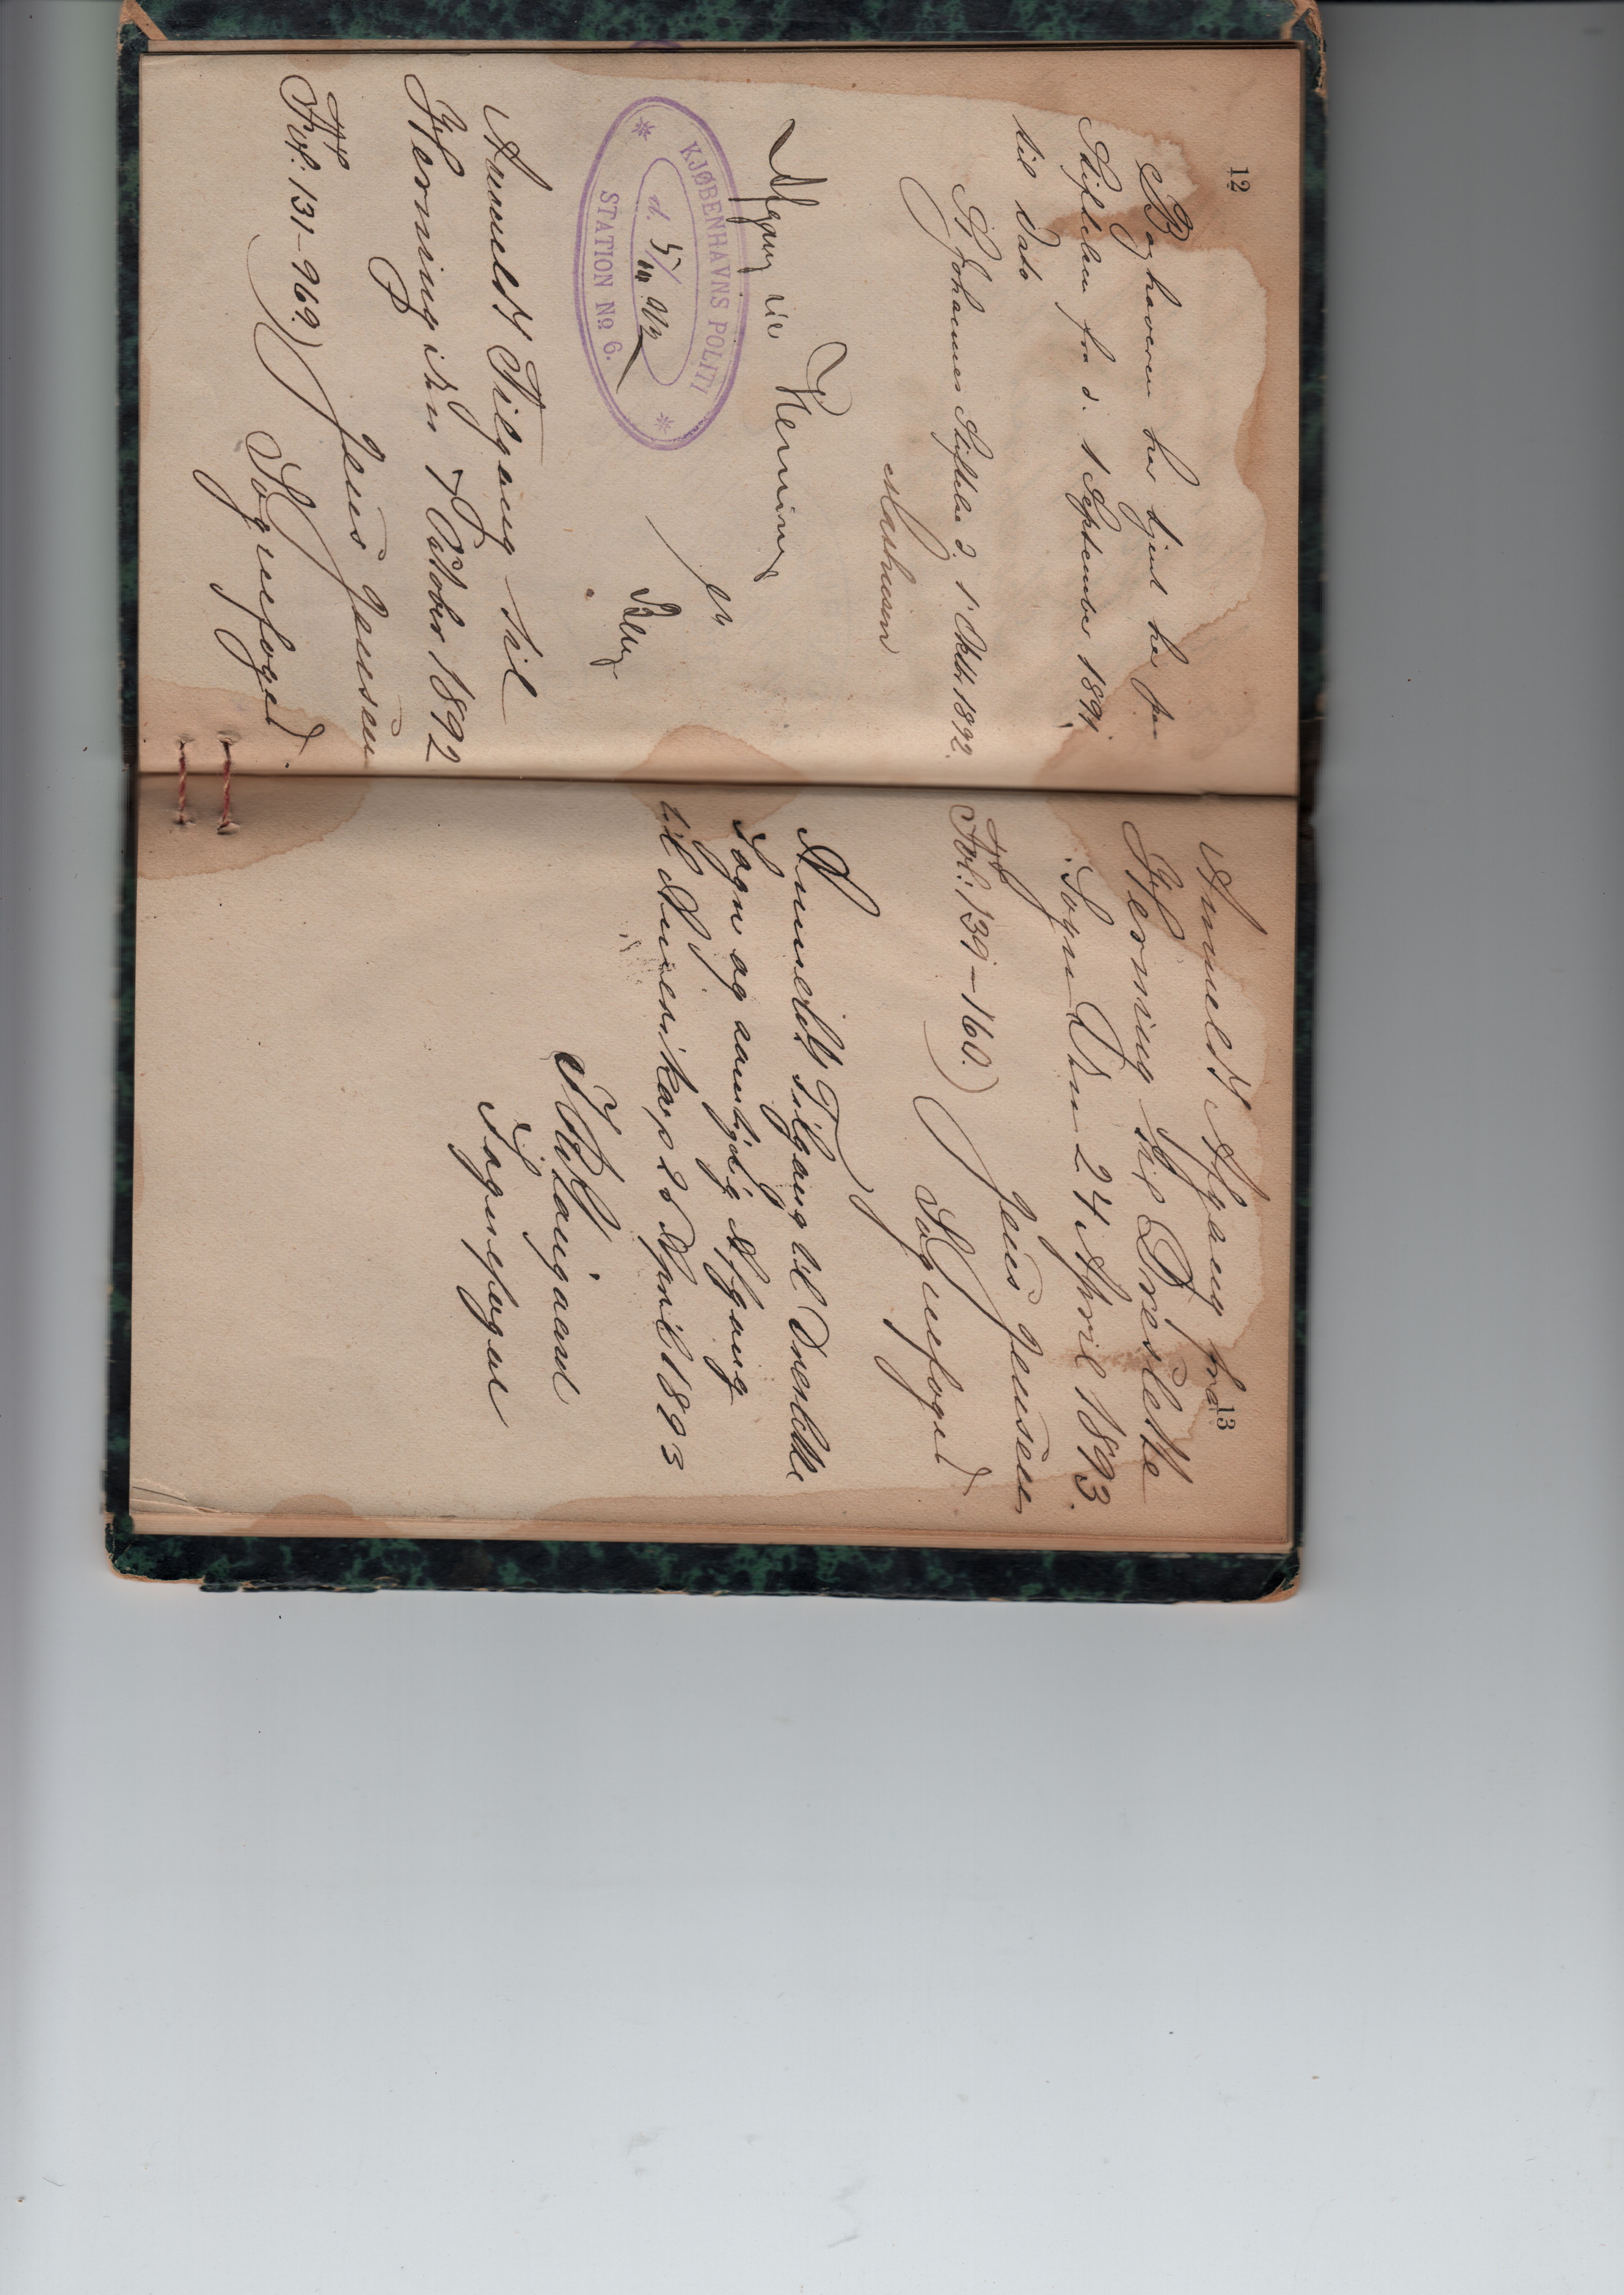 12
Boghaveren har tjent her paa
Stiftelsen fra d. 1 September 1891
til Dato
St Johannes Stiftelse d. 1 Oktbr 1892.
Mathiesen
Afgang til Herning
KJØBENHAVNS POLITI
d. 5/10 92
STATION No 6.
Berg
Anmeldt Tilgang til
Herning den 7 Octobr 1892
Jens Jensen
Fol: 131-969.) Sognefoged
13
Anmeldt Afgang fra
Herning til Dreslette
Sogn Den 24 April 1893.
Jens Jensen
Fol: 139-160.) Sognefoged
Anmeldt Tilgang til Dreslette
Sogn og samtidig Afgang
til Amerika, p 26 April 1893
Haugaard
Sognefoged